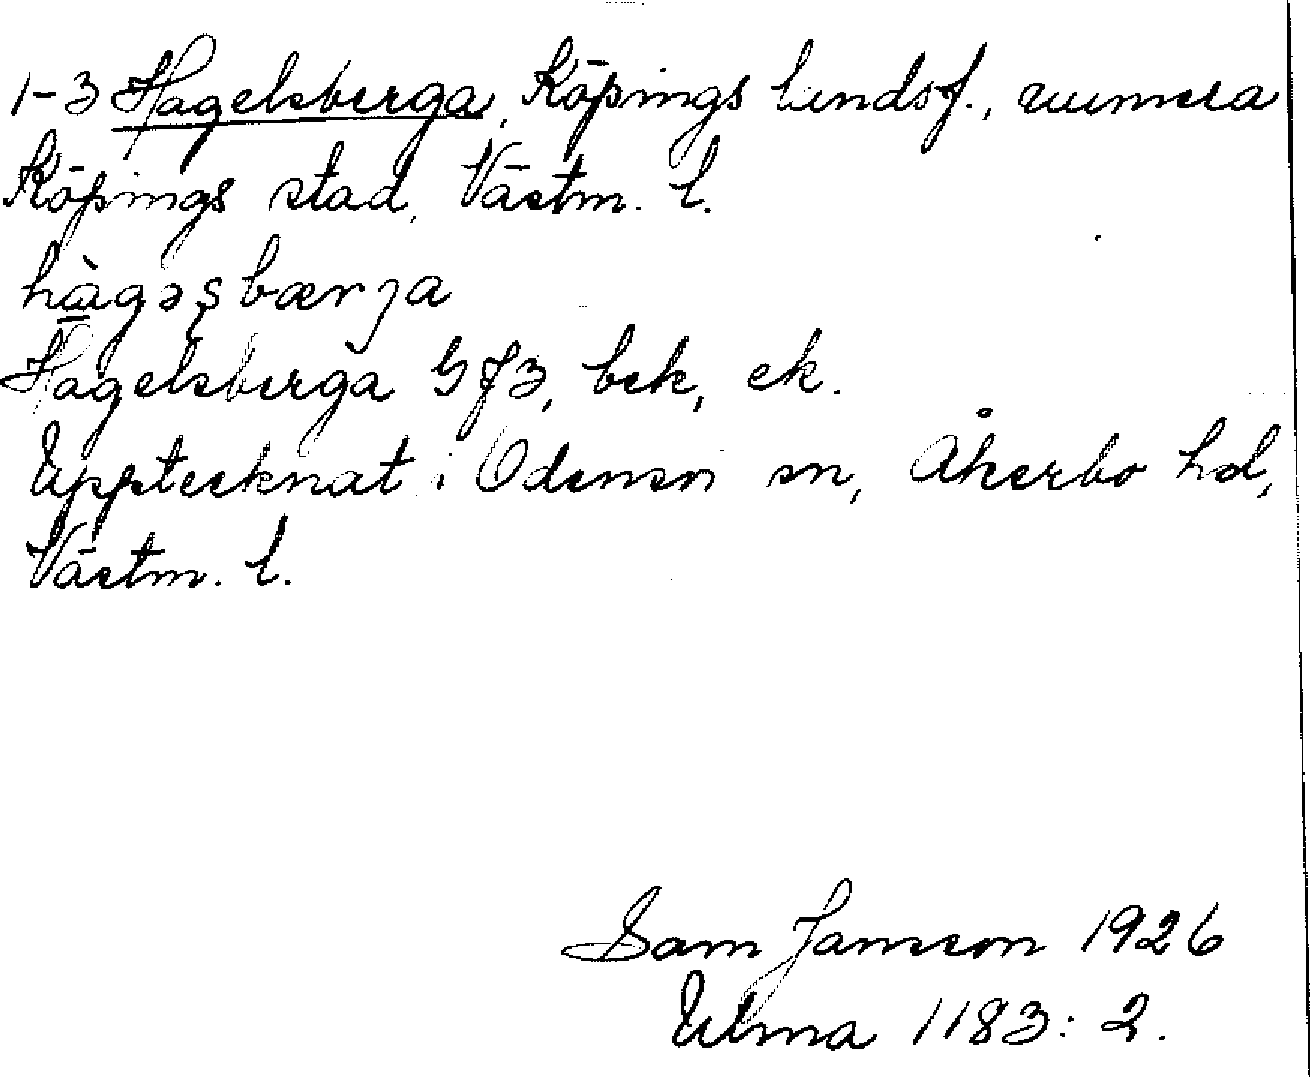 1-3 Hagelsberga, Köpings landsf., numera
Köpings stad, Västm. l.
hàgəsbærja
Hagelsberga GJ3, bek, ek.
Upptecknat i Odensvi sn, Åkerbo hd,
Västm. l.
Sam Jansson 1926
Ulma 1183: 2.